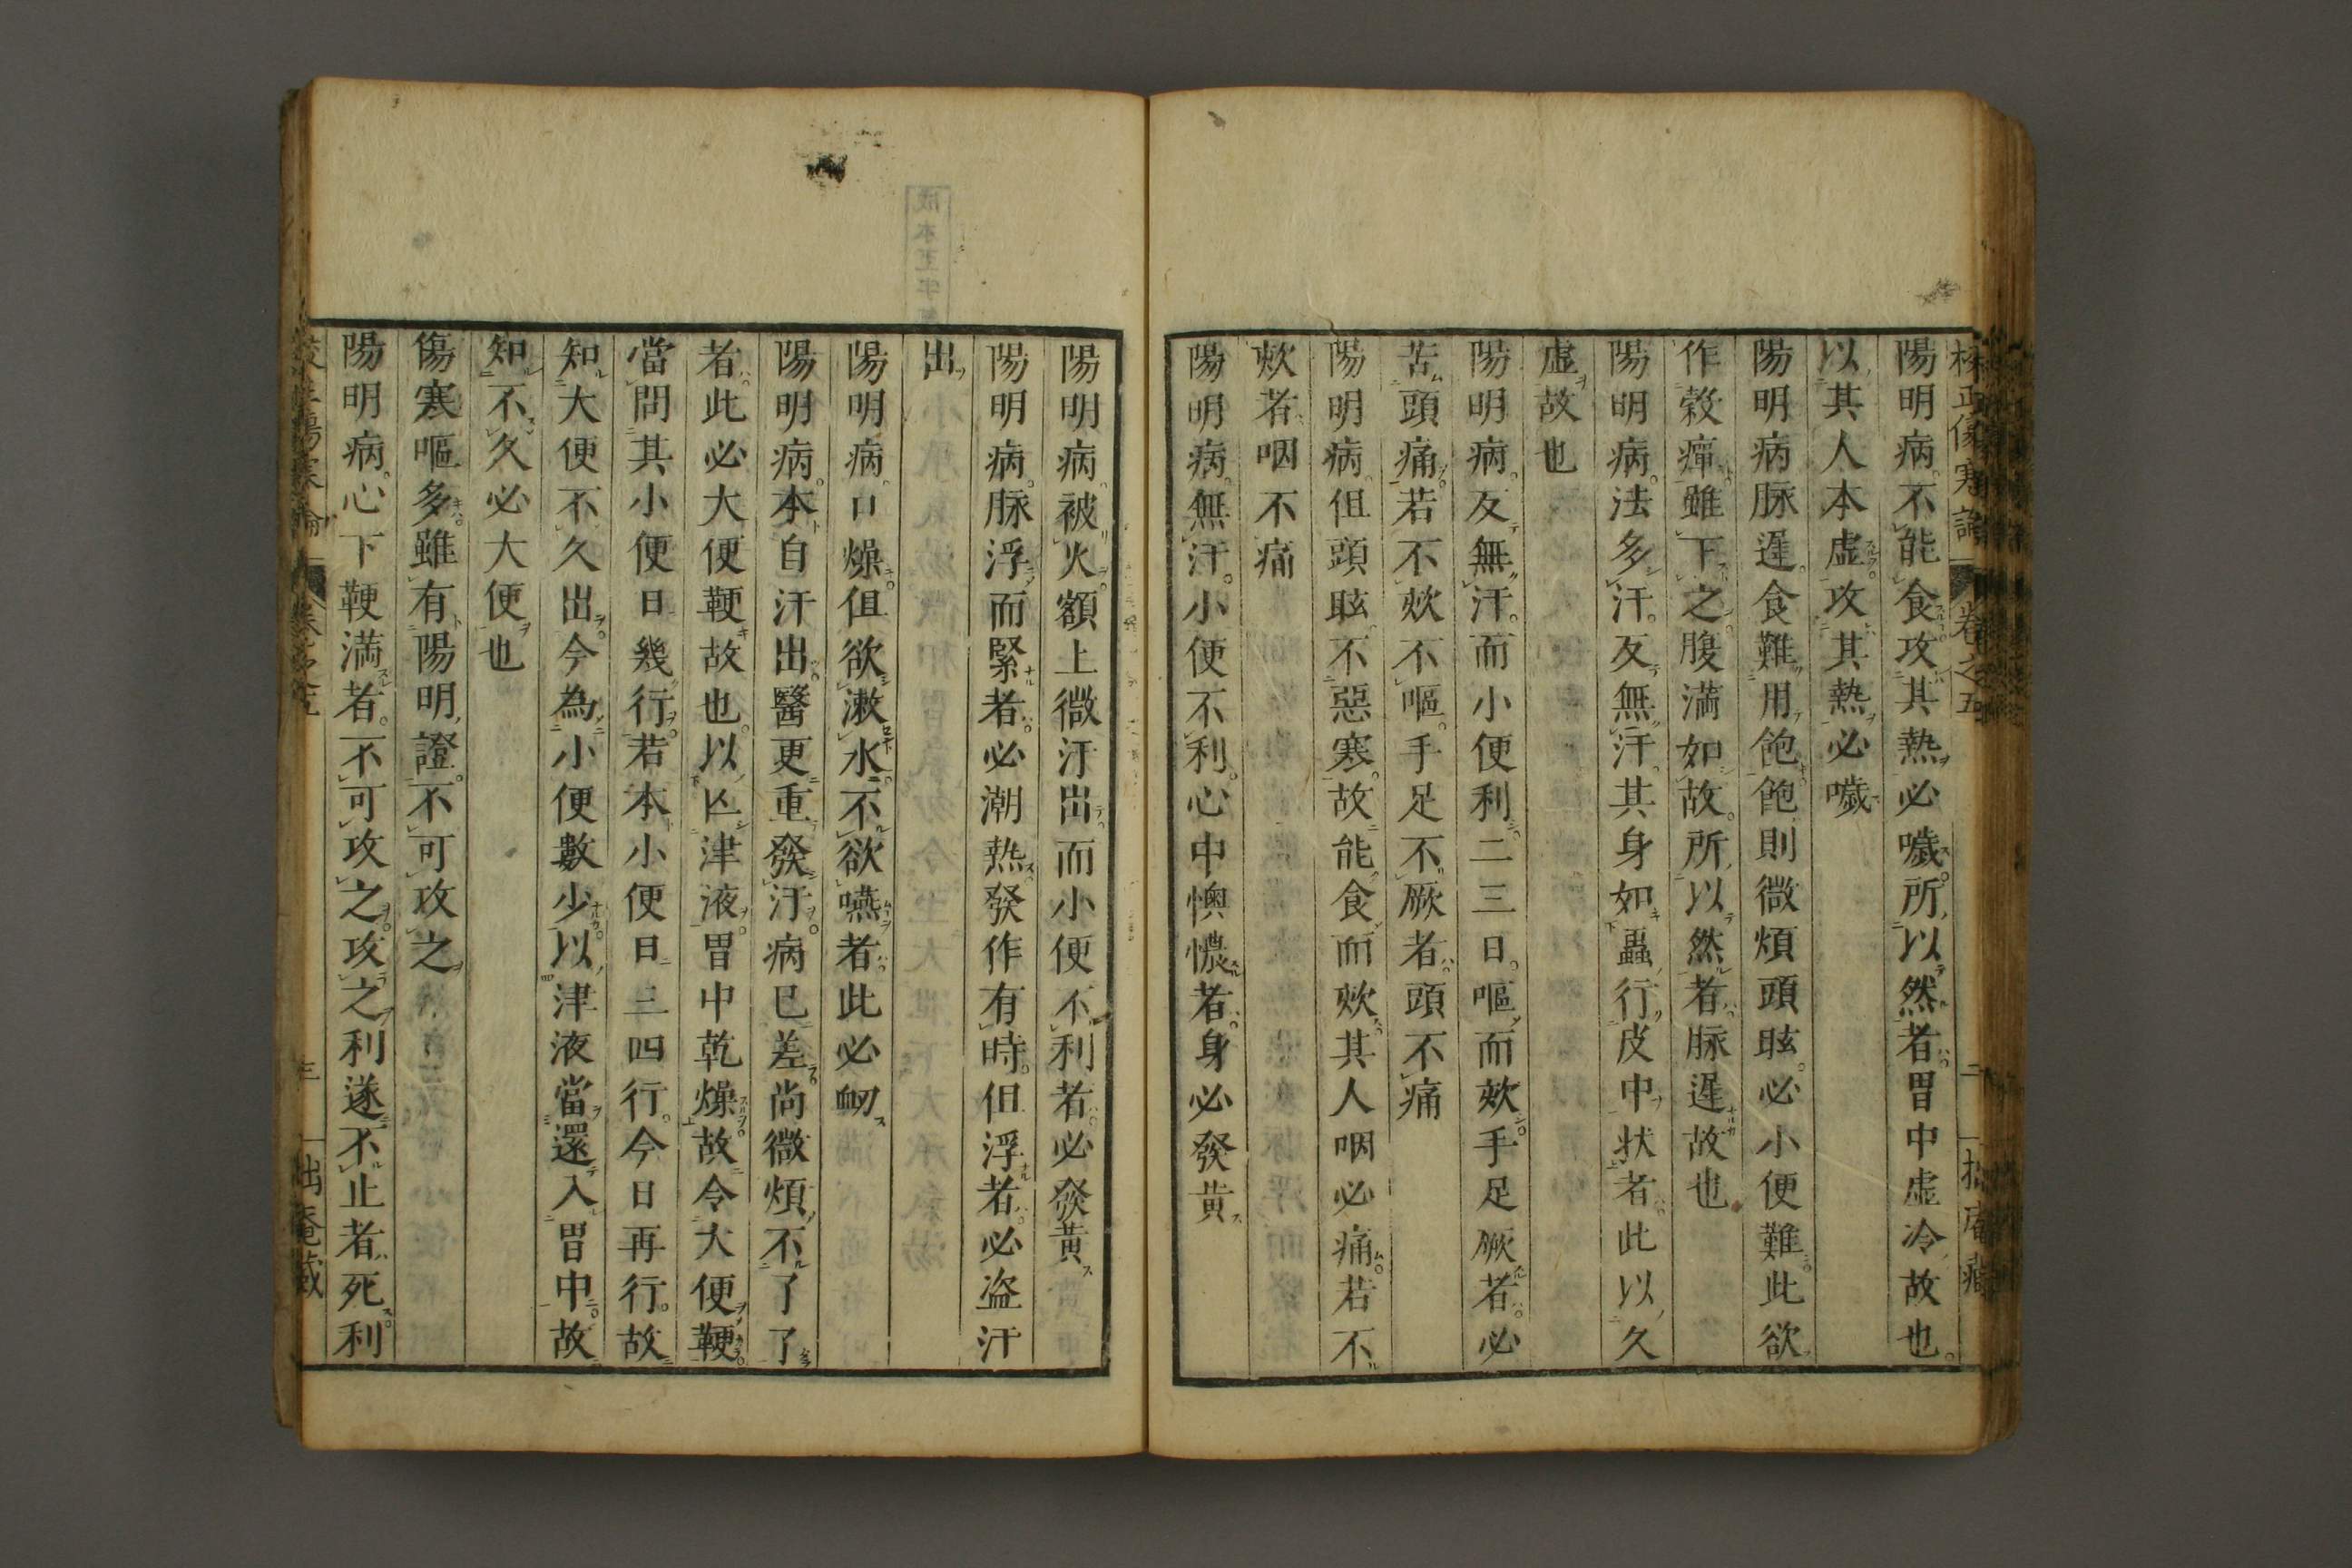 校正傷寒論 卷之五 二 拙庵藏
陽明病不能食攻其熱必噦所以然者胃中虛冷故也
以其人本虛攻其熱必噦
陽明病脉遲食難用飽飽則微煩頭眩必小便難此欲
作穀癉雖下之腹滿如故所以然者脉遲故也
陽明病法多汗反無汗其身如蟲行皮中状者此以久
虛故也
陽明病反無汗而小便利二三日嘔而欬手足厥者必
苦頭痛若不欬不嘔手足不厥者頭不痛
陽明病但頭眩不惡寒故能食而欬其人咽必痛若不
欬者咽不痛
陽明病無汗小便不利心中懊憹者身必發黄
陽明病被火額上微汗出而小便不利者必發黃
陽明病脉浮而緊者必潮熱發作有時但浮者必盗汗
出
陽明病口燥但欲漱水不欲嚥者此必衄
陽明病本自汗出醫更重發汗病已差尚微煩不了了
者此必大便鞕故也以亾津液胃中乾燥故令大便鞕
當問其小便日幾行若本小便日三四行今日再行故
知大便不久出今為小便數少以津液當還入胃中故
知不久必大便也
傷寒嘔多雖有陽明證不可攻之
陽明病心下鞕満者不可攻之攻之利遂不止者死利
傷寒論 卷之五 三 拙庵藏